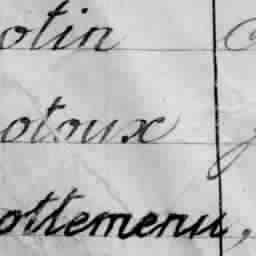 otin
otoux
ottemenu,